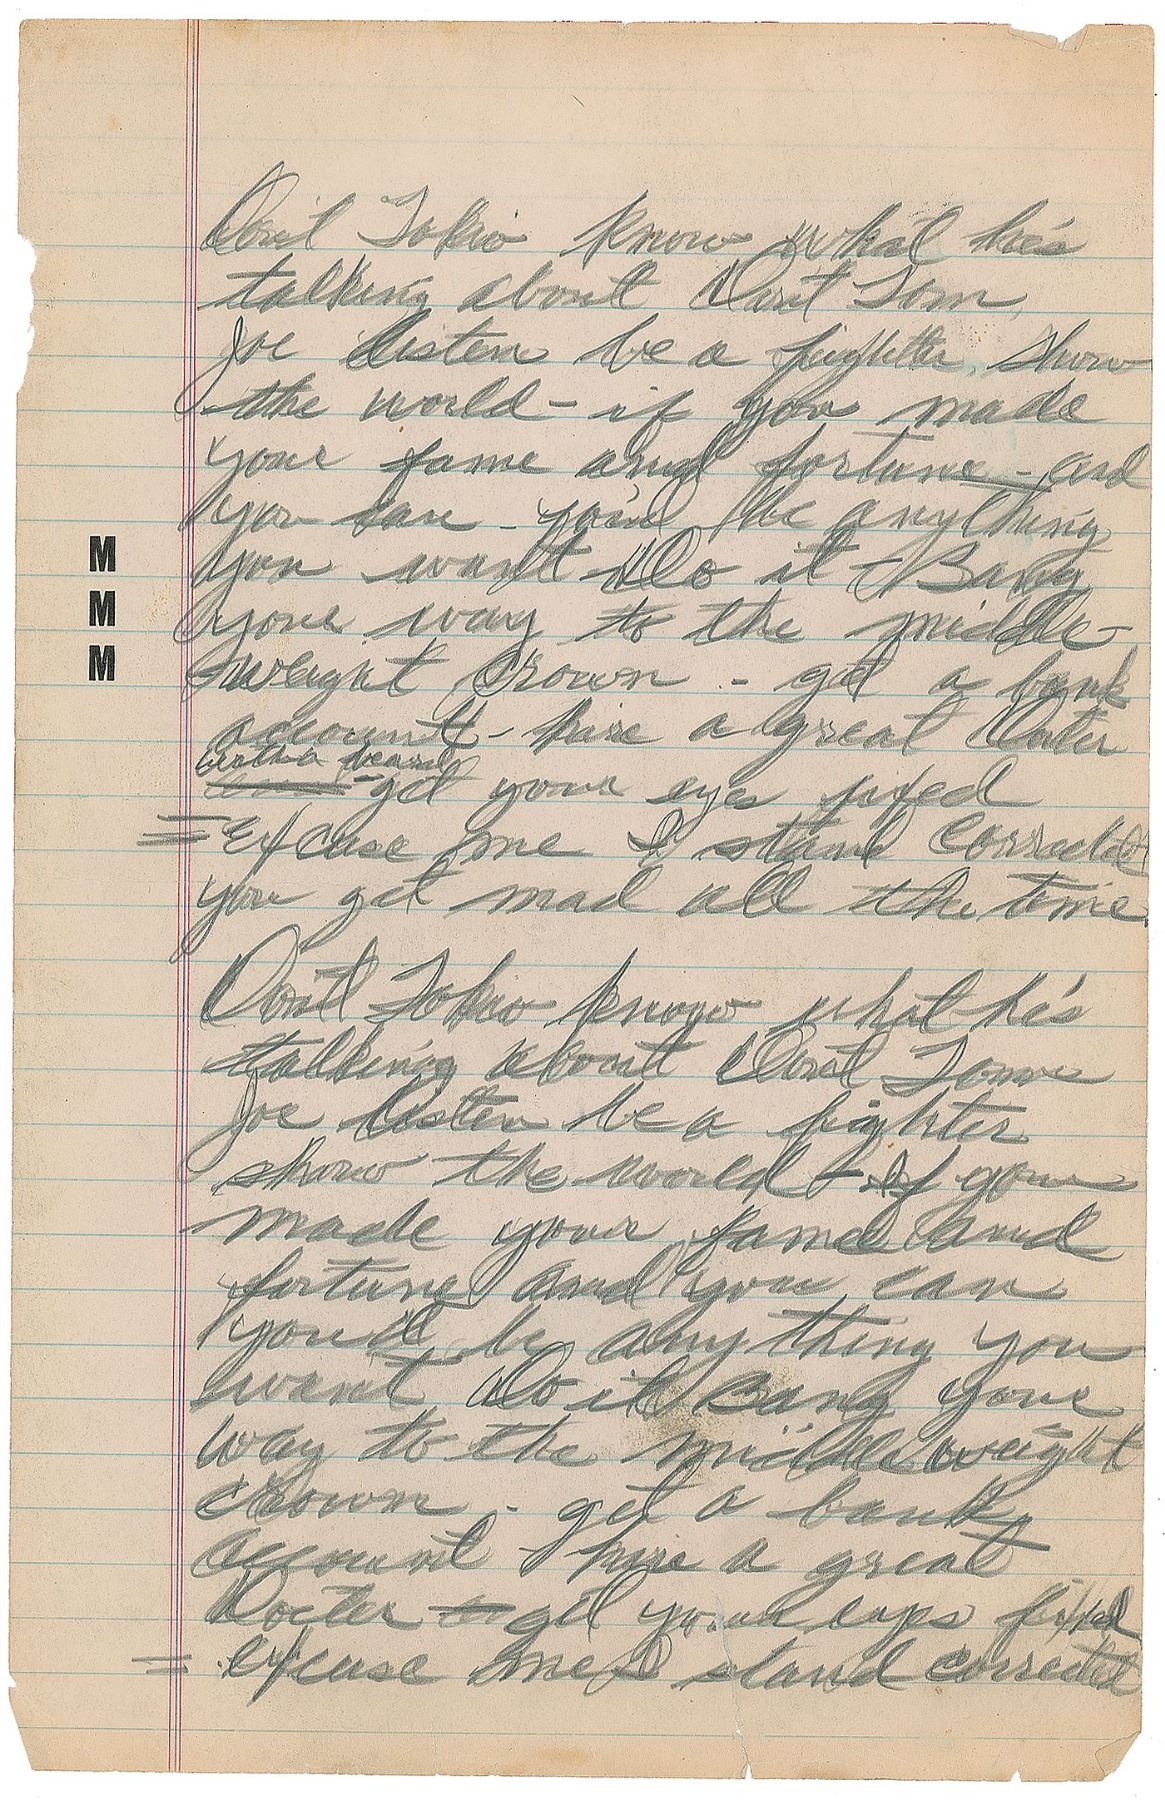 Don't Tokio know what he's
talking about Don't Tom,
Joe listen be a fighter, show
the world - if you made
your fame and fortune - and
you can - you'd be anything
you want Do it - Bang
your way to the middle-
weight crown - get a bank
account - hire a great
with a beard
get your eyes fixed
= excuse me I stand corrected
you get mad all the time.
Don't Tokio know what he's
talking about Don't Tom
Joe listen be a fighter
show the world - If you
made your fame and
fortune and you can
you'd be anything you
want Do it Bang your
way to the middle weight
crown - get a bank
account - hire a great
Docter get your eyes fixed
= excuse me I stand corrected
M
M
M